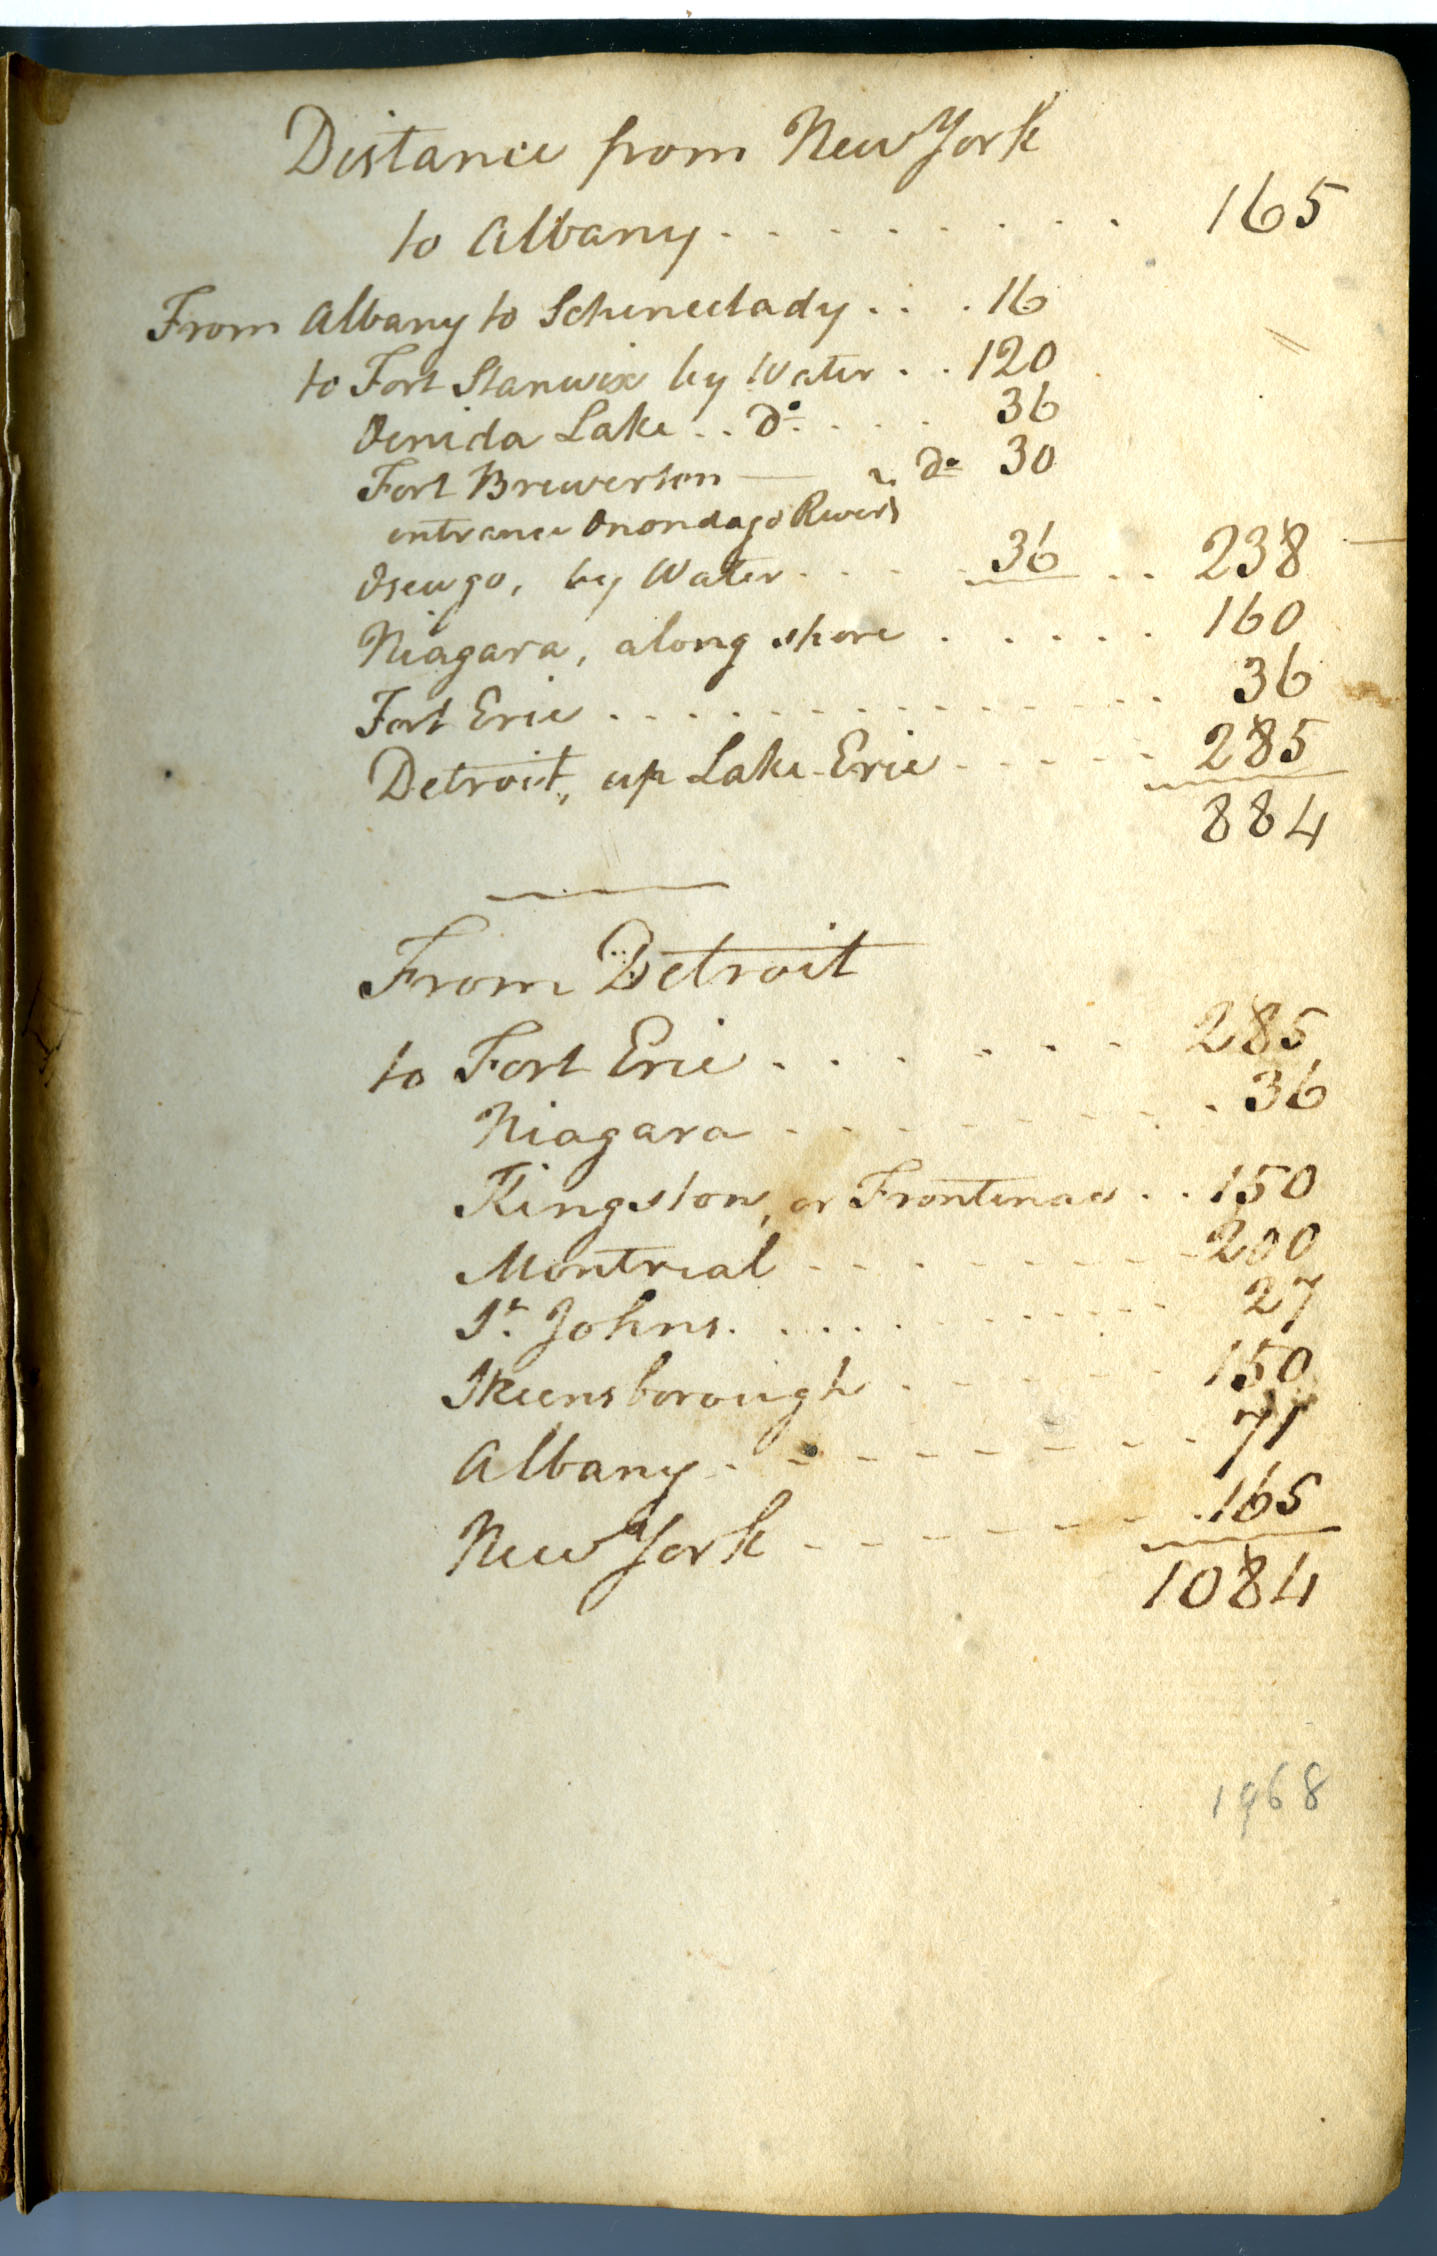 Distance from New York
to Albany . . . . . . . . . 165
From Albany to Schenectady . . . 16
to Fort Stanwix by Water . . 120
Oenida Lake . . Do. . . . . 36
Fort Brewerton — Do 30
entrance Onondago River
Oswego, by Water . . . . 36 . . 238
Niagara, along shore . . . . . . 160
Fort Erie . . . . . . . . . . . . . . 36
Detroit, up Lake Erie . . . . . . 285
884
From Detroit
to Fort Erie . . . . . . . 285
Niagara . . . . . . . . 36
Kingston, or Frontenac . . 150
Montreal . . . . . . . . 200
St. Johns . . . . . . . . . . . 27
Skeensborough . . . . . . 150
Albany . . . . . . . . . . 71
New York . . . . . . . . 165
1084
1968